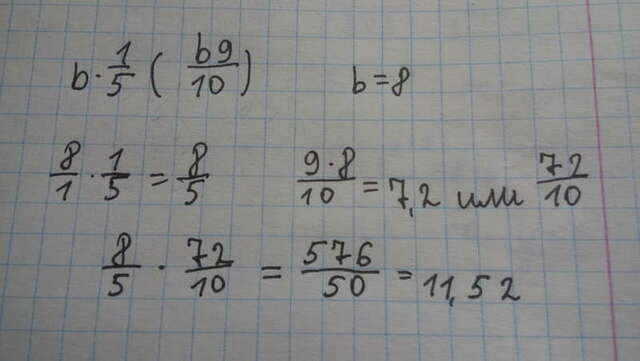 b · 1/5 ( b9/10 ) b = 8
8/1 · 1/5 = 8/5 9 · 8/10 = 7,2 или 72/10
8/5 · 72/10 = 576/50 = 11,52